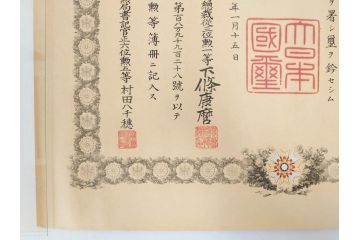 ヲ署シ璽ヲ鈐セシム
年一月十五日
大日本
國璽
總裁從三位勲一等下條康麿
第百八万九千九百二十八號ヲ以テ
勲等簿冊ニ記入ス
局書記官正六位勲五等村田八千穂